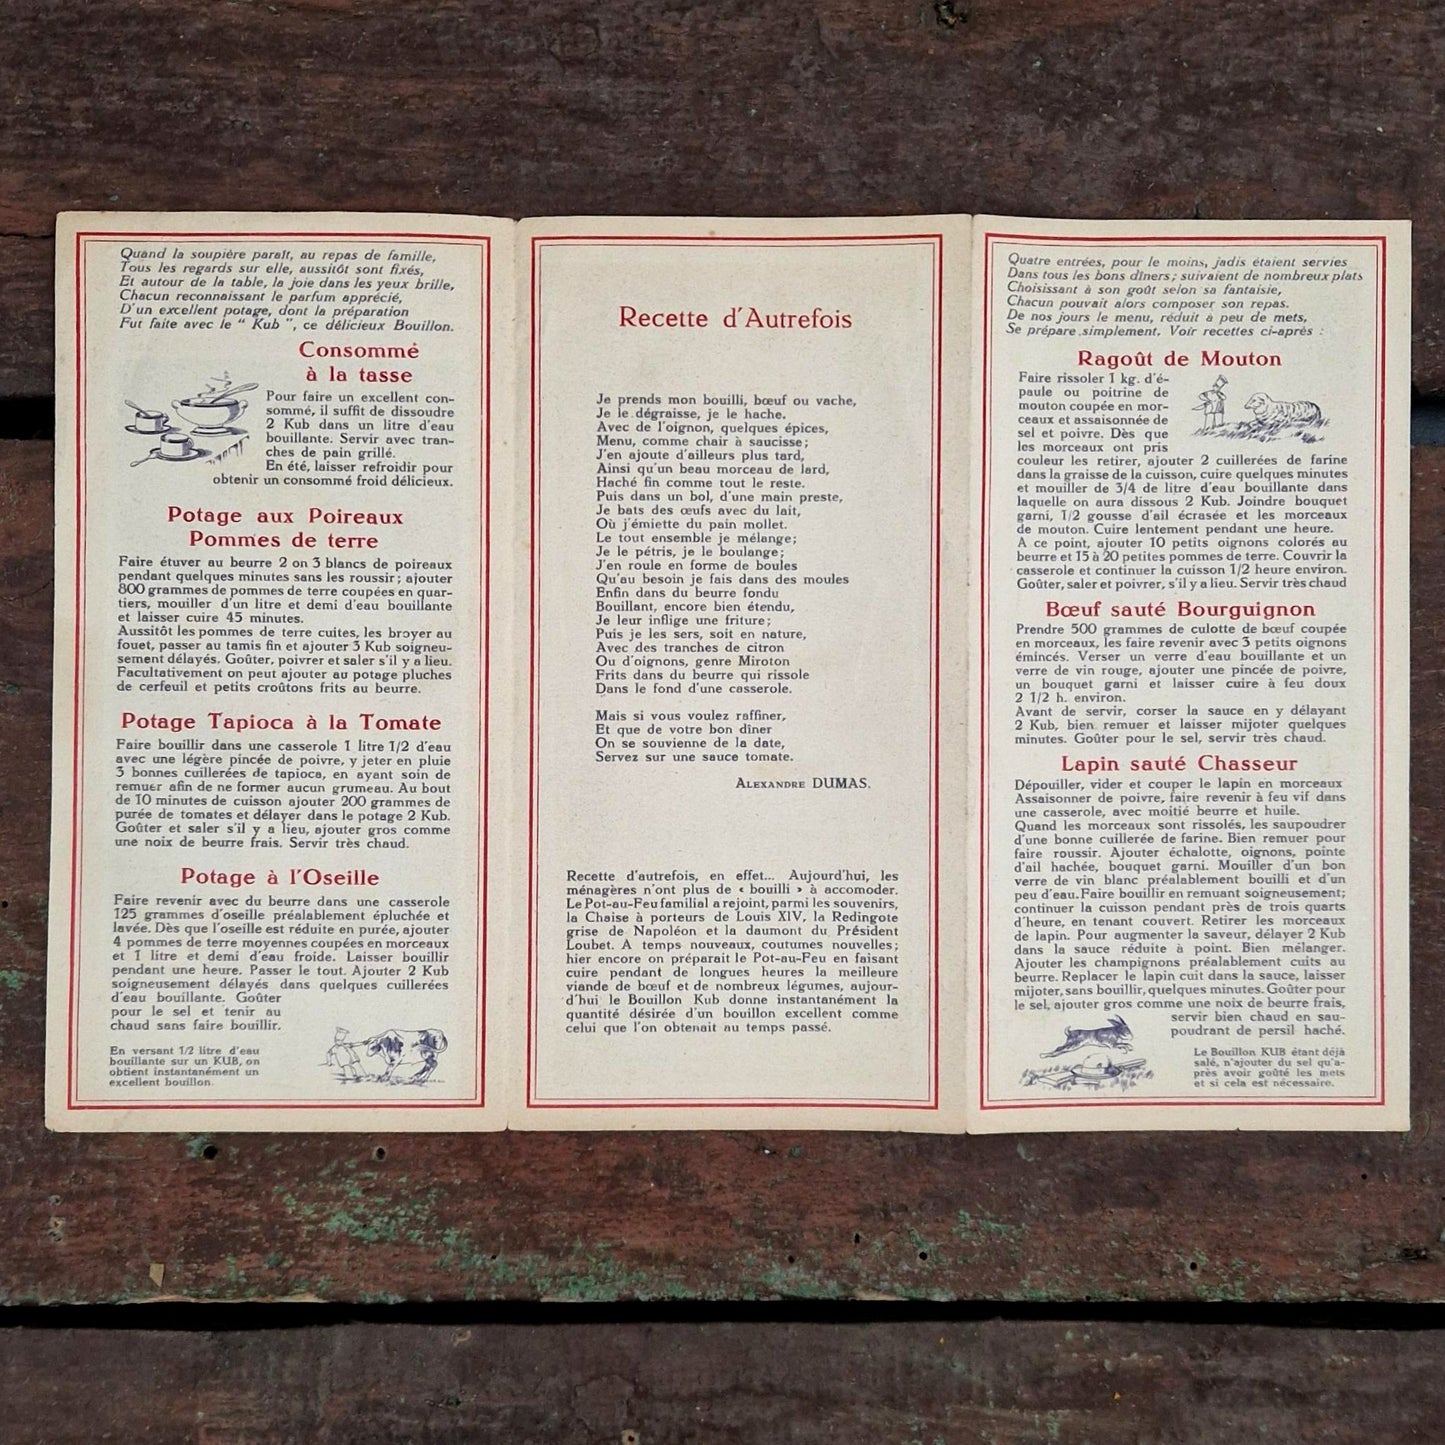 Quand la soupière paraît, au repas de famille,
Tous les regards sur elle, aussitôt sont fixés,
Et autour de la table, la joie dans les yeux brille,
Chacun reconnaissant le parfum apprécié,
D'un excellent potage, dont la préparation
Fut faite avec le " Kub ", ce délicieux Bouillon.
Consommé
à la tasse
Pour faire un excellent con-
sommé, il suffit de dissoudre
2 Kub dans un litre d'eau
bouillante. Servir avec tran-
ches de pain grillé.
En été, laisser refroidir pour
obtenir un consommé froid délicieux.
Potage aux Poireaux
Pommes de terre
Faire étuver au beurre 2 on 3 blancs de poireaux
pendant quelques minutes sans les roussir ; ajouter
800 grammes de pommes de terre coupées en quar-
tiers, mouiller d'un litre et demi d'eau bouillante
et laisser cuire 45 minutes.
Aussitôt les pommes de terre cuites, les broyer au
fouet, passer au tamis fin et ajouter 3 Kub soigneu-
sement délayés. Goûter, poivrer et saler s'il y a lieu.
Facultativement on peut ajouter au potage pluches
de cerfeuil et petits croûtons frits au beurre.
Potage Tapioca à la Tomate
Faire bouillir dans une casserole 1 litre 1/2 d'eau
avec une légère pincée de poivre, y jeter en pluie
3 bonnes cuillerées de tapioca, en ayant soin de
remuer afin de ne former aucun grumeau. Au bout
de 10 minutes de cuisson ajouter 200 grammes de
purée de tomates et délayer dans le potage 2 Kub.
Goûter et saler s'il y a lieu, ajouter gros comme
une noix de beurre frais. Servir très chaud.
Potage à l'Oseille
Faire revenir avec du beurre dans une casserole
125 grammes d'oseille préalablement épluchée et
lavée. Dès que l'oseille est réduite en purée, ajouter
4 pommes de terre moyennes coupées en morceaux
et 1 litre et demi d'eau froide. Laisser bouillir
pendant une heure. Passer le tout. Ajouter 2 Kub
soigneusement délayés dans quelques cuillerées
d'eau bouillante. Goûter
pour le sel et tenir au
chaud sans faire bouillir.
En versant 1/2 litre d'eau
bouillante sur un KUB, on
obtient instantanément un
excellent bouillon.
Recette d'Autrefois
Je prends mon bouilli, bœuf ou vache,
Je le dégraisse, je le hache.
Avec de l'oignon, quelques épices,
Menu, comme chair à saucisse ;
J'en ajoute d'ailleurs plus tard,
Ainsi qu'un beau morceau de lard,
Haché fin comme tout le reste.
Puis dans un bol, d'une main preste,
Je bats des œufs avec du lait,
Où j'émiette du pain mollet.
Le tout ensemble je mélange ;
Je le pétris, je le boulange ;
J'en roule en forme de boules
Qu'au besoin je fais dans des moules
Enfin dans du beurre fondu
Bouillant, encore bien étendu,
Je leur inflige une friture ;
Puis je les sers, soit en nature,
Avec des tranches de citron
Ou d'oignons, genre Miroton
Frits dans du beurre qui rissole
Dans le fond d'une casserole.
Mais si vous voulez raffiner,
Et que de votre bon dîner
On se souvienne de la date,
Servez sur une sauce tomate.
Alexandre DUMAS.
Recette d'autrefois, en effet... Aujourd'hui, les
ménagères n'ont plus de « bouilli » à accomoder.
Le Pot-au-Feu familial a rejoint, parmi les souvenirs,
la Chaise à porteurs de Louis XIV, la Redingote
grise de Napoléon et la daumont du Président
Loubet. A temps nouveaux, coutumes nouvelles ;
hier encore on préparait le Pot-au-Feu en faisant
cuire pendant de longues heures la meilleure
viande de bœuf et de nombreux légumes, aujour-
d'hui le Bouillon Kub donne instantanément la
quantité désirée d'un bouillon excellent comme
celui que l'on obtenait au temps passé.
Quatre entrées, pour le moins, jadis étaient servies
Dans tous les bons dîners ; suivaient de nombreux plats
Choisissant à son goût selon sa fantaisie,
Chacun pouvait alors composer son repas.
De nos jours le menu, réduit à peu de mets,
Se prépare simplement. Voir recettes ci-après :
Ragoût de Mouton
Faire rissoler 1 kg. d'é-
paule ou poitrine de
mouton coupée en mor-
ceaux et assaisonnée de
sel et poivre. Dès que
les morceaux ont pris
couleur les retirer, ajouter 2 cuillerées de farine
dans la graisse de la cuisson, cuire quelques minutes
et mouiller de 3/4 de litre d'eau bouillante dans
laquelle on aura dissous 2 Kub. Joindre bouquet
garni, 1/2 gousse d'ail écrasée et les morceaux
de mouton. Cuire lentement pendant une heure.
A ce point, ajouter 10 petits oignons colorés au
beurre et 15 à 20 petites pommes de terre. Couvrir la
casserole et continuer la cuisson 1/2 heure environ.
Goûter, saler et poivrer, s'il y a lieu. Servir très chaud
Bœuf sauté Bourguignon
Prendre 500 grammes de culotte de bœuf coupée
en morceaux, les faire revenir avec 3 petits oignons
émincés. Verser un verre d'eau bouillante et un
verre de vin rouge, ajouter une pincée de poivre,
un bouquet garni et laisser cuire à feu doux
2 1/2 h. environ.
Avant de servir, corser la sauce en y délayant
2 Kub, bien remuer et laisser mijoter quelques
minutes. Goûter pour le sel, servir très chaud.
Lapin sauté Chasseur
Dépouiller, vider et couper le lapin en morceaux
Assaisonner de poivre, faire revenir à feu vif dans
une casserole, avec moitié beurre et huile.
Quand les morceaux sont rissolés, les saupoudrer
d'une bonne cuillerée de farine. Bien remuer pour
faire roussir. Ajouter échalotte, oignons, pointe
d'ail hachée, bouquet garni. Mouiller d'un bon
verre de vin blanc préalablement bouilli et d'un
peu d'eau. Faire bouillir en remuant soigneusement ;
continuer la cuisson pendant près de trois quarts
d'heure, en tenant couvert. Retirer les morceaux
de lapin. Pour augmenter la saveur, délayer 2 Kub
dans la sauce réduite à point. Bien mélanger.
Ajouter les champignons préalablement cuits au
beurre. Replacer le lapin cuit dans la sauce, laisser
mijoter, sans bouillir, quelques minutes. Goûter pour
le sel, ajouter gros comme une noix de beurre frais,
servir bien chaud en sau-
poudrant de persil haché.
Le Bouillon KUB étant déjà
salé, n'ajouter du sel qu'a-
près avoir goûté les mets
et si cela est nécessaire.